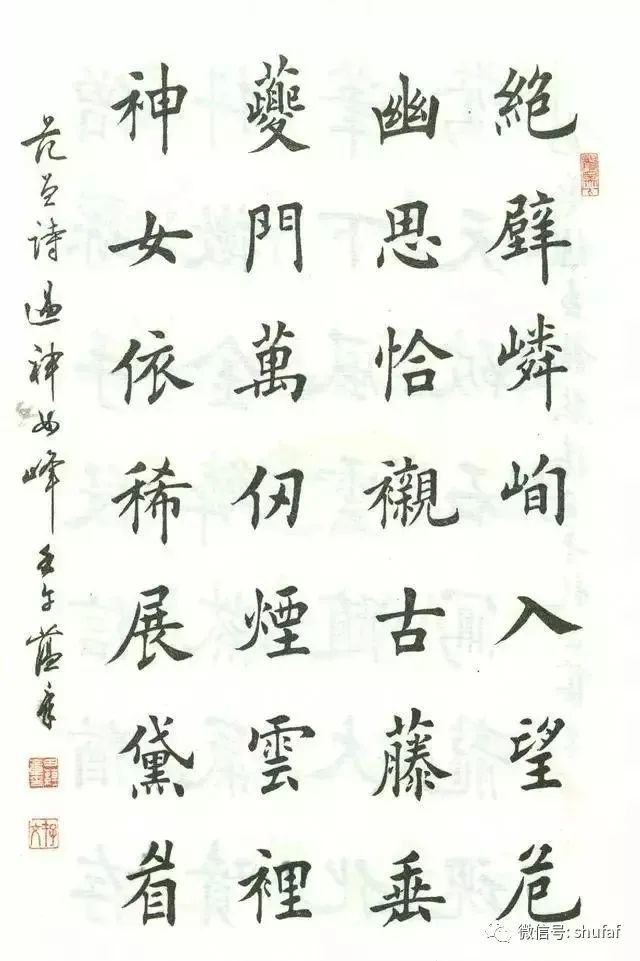 絕壁嶙峋入望危
幽思恰襯古藤垂
夔門萬仞煙雲裡
神女依稀展黛眉
范曾詩過神女峰壬午
微信号: shufaf